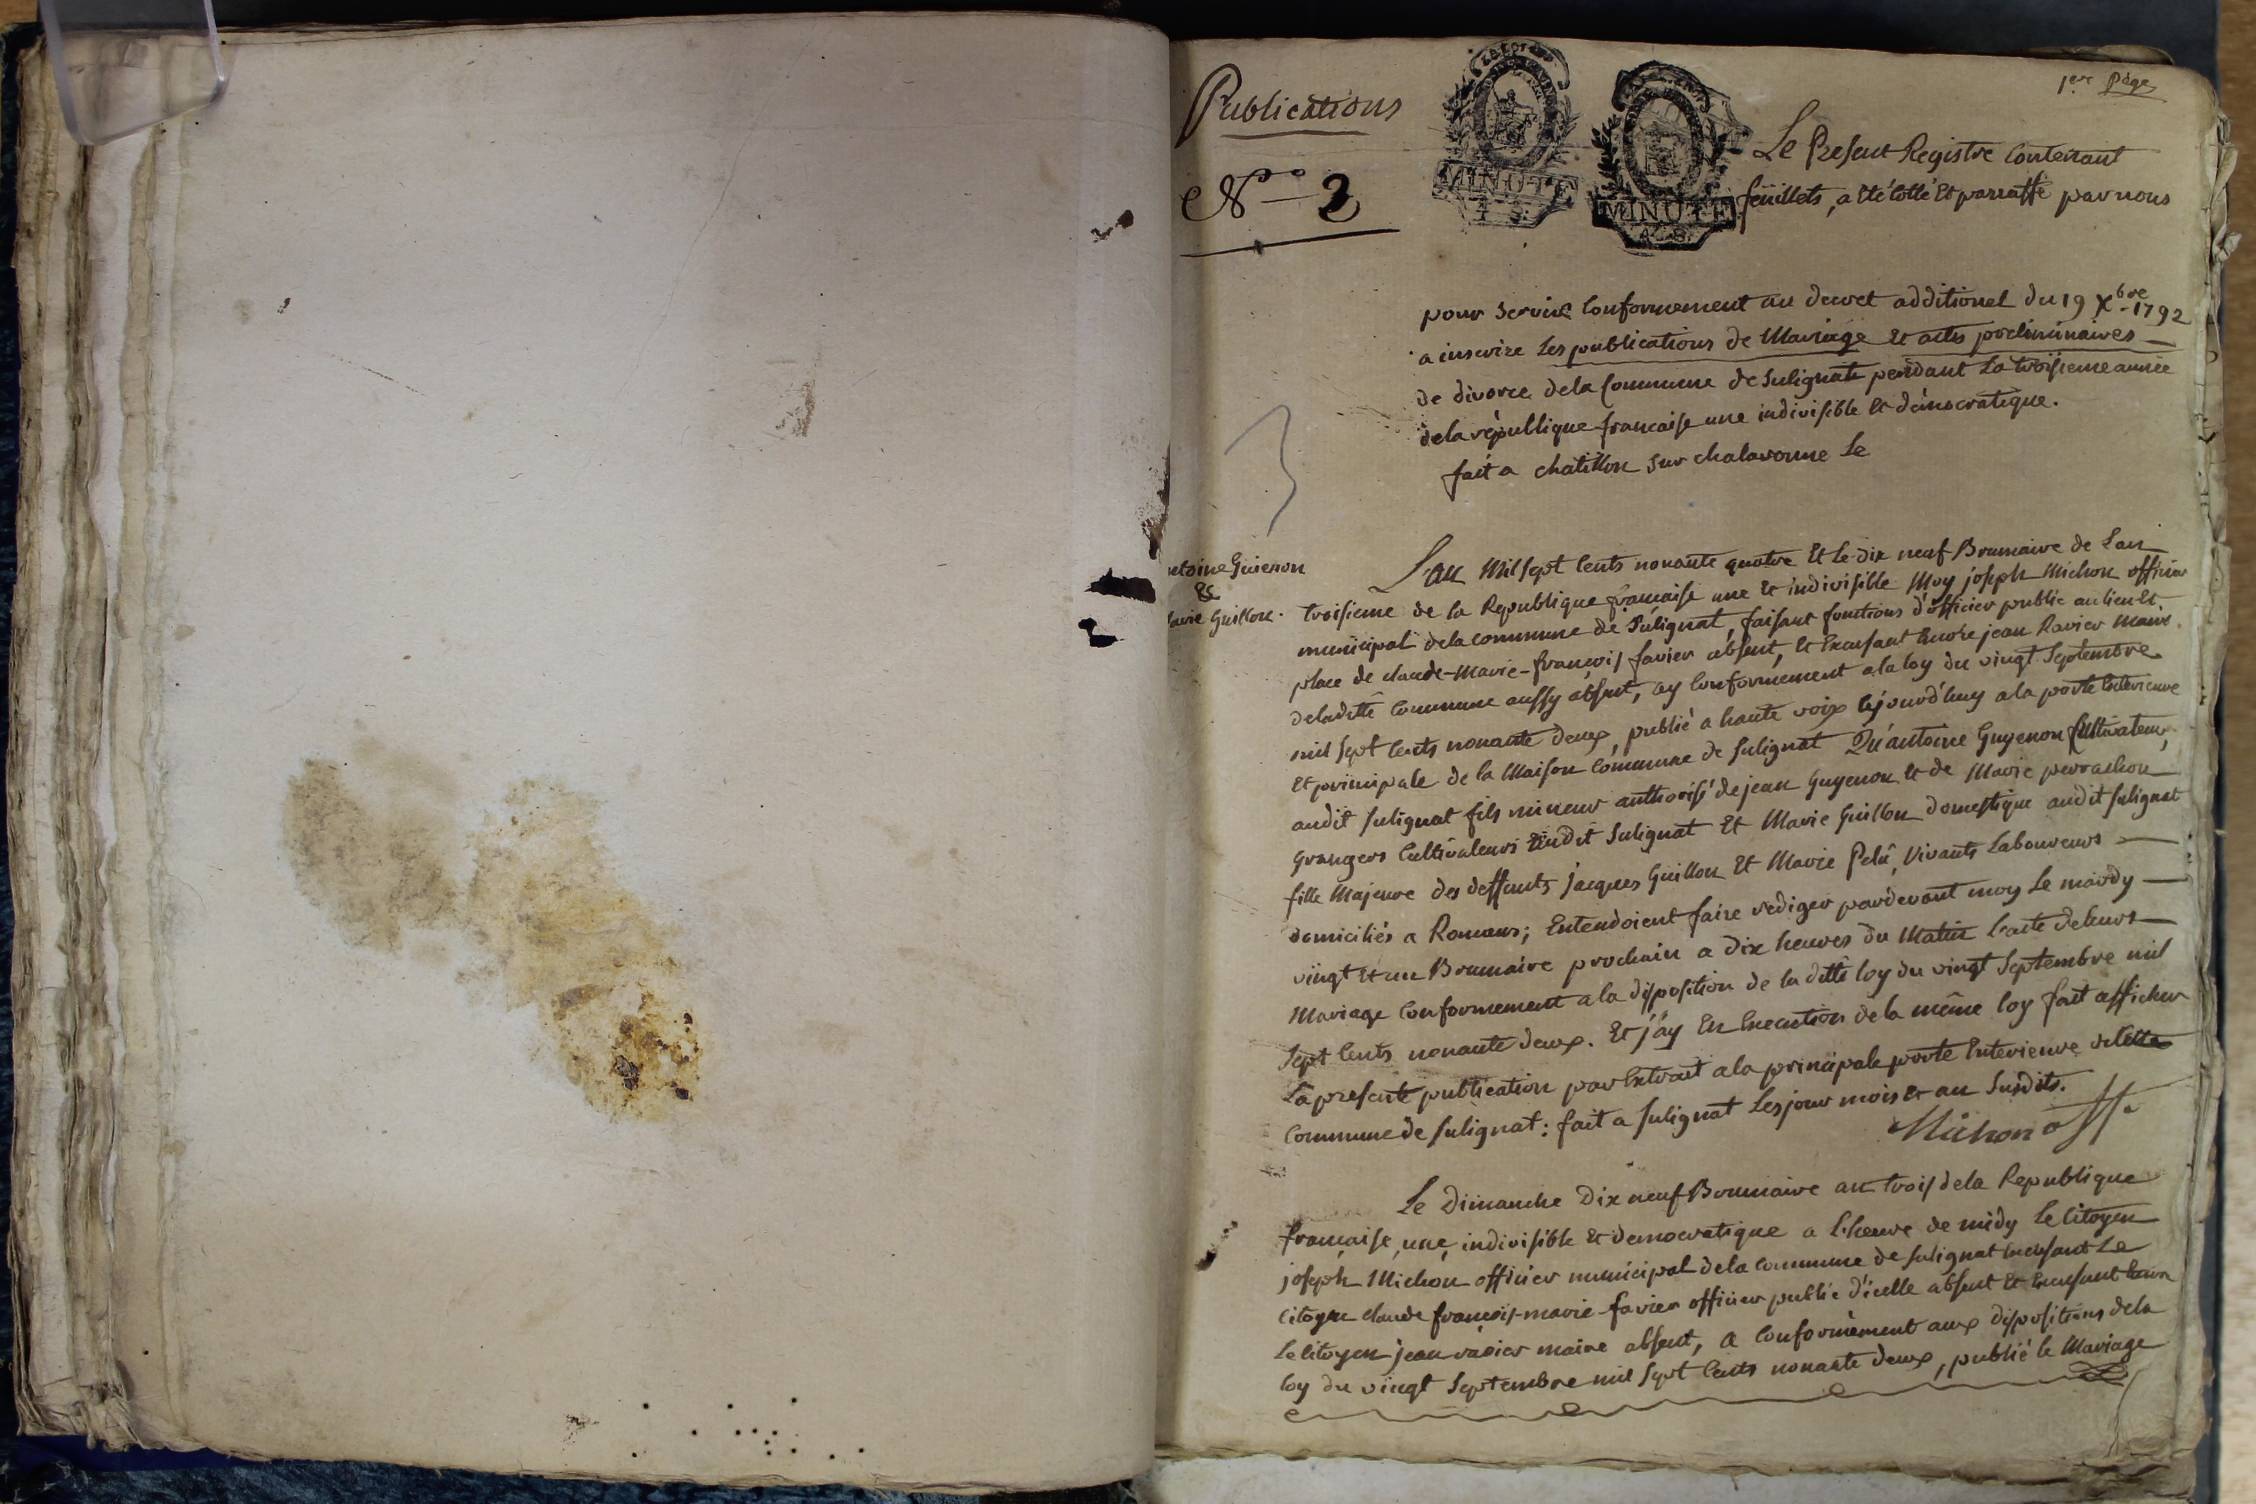 1ere Page
Publications
N.° 2
MINUTE
4. S.
MINUTE
4. S.
Le Present Registre Contenant
feüillets, a Eté Cotté Et parraffé par nous
pour servir Conformement au decret additionel du 19 Xbre 1792
a inscrire Les publications de Mariage Et actes preliminaires
de divorce dela Commune de Sulignat pendant La troisieme année
dela république francaise une indivisible Et démocratique.
fait a chatillon sur chalaronne Le
ntoine Guienon
&
arie Guillon.
L'an Mil sept Cents nonante quatre Et Le dix neuf Brumaire de L'an
troisieme de la Republique francaise une Et indivisible Moy joseph Michon officier
municipal dela commune de Sulignat, faisant fonctions d'officier public au lieu Et
place de claude-Marie-françois favier absent, Et Excusant Encore jean Ravier Maire
deladitte Commune aussy absent, ay Conformement ala loy du vingt Septembre
mil sept Cents nonante deux, publié a haute voix cejourd'huy ala porte Exterieure
Et principale de la Maison Commune de Sulignat Qu'antoine Guyenon Cultivateur,
audit Sulignat fils mineur authorisé de jean Guyenon Et de Marie perrachon
Grangers Cultivateurs audit Sulignat Et Marie Guillon domestique audit Sulignat
fille Majeure des deffunts jacques Guillon Et Marie Pelû, Vivants Laboureurs
domiciliés a Romans; Entendoient faire rediger pardevant moy Le mardy
vingt Et un Brumaire prochain a Dix heures du Matin L'acte de leurs
Mariage Conformement ala disposition de la ditte loy du vingt Septembre mil
sept Cents nonante deux. Et j'ay En Execution dela même loy fait afficher
La presente publication par Extrait ala principale porte Exterieure de cette
Commune de Sulignat: fait a Sulignat Les jour mois Et an Susdits.
Michon off.
Le Dimanche Dix neuf Brumaire an trois dela Republique
francaise, une, indivisible Et democratique a L'heure de midy Le Citoyen
joseph Michon officier municipal dela Commune de Sulignat Excusant Le
Citoyen claude françois-marie favier officier public d'icelle absent Et Excusant
Le Citoyen jean ravier maire absent, a Conformement aux dispositions dela
loy du vingt Septembre mil Sept Cents nonante deux, publié le Mariage